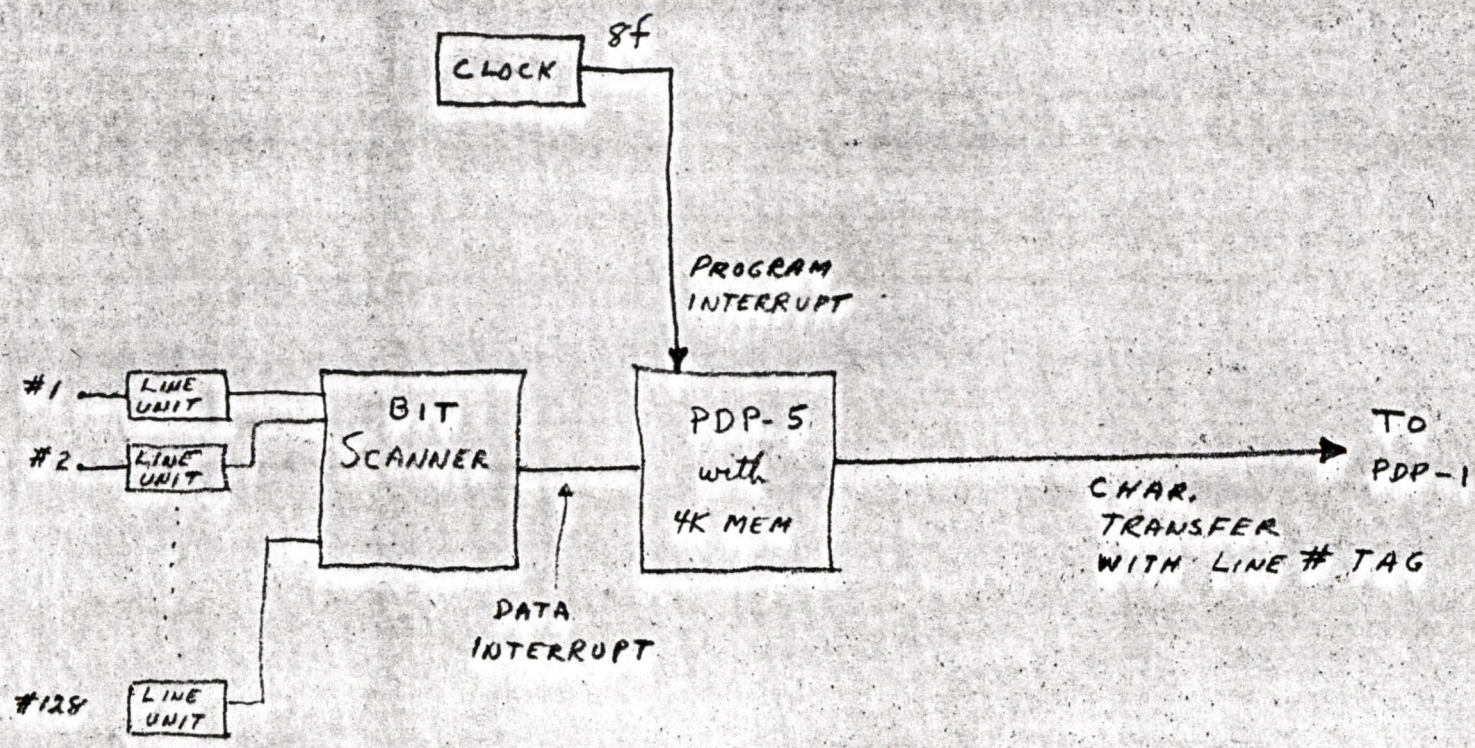 8f
CLOCK
PROGRAM
INTERRUPT
#1
LINE
UNIT
#2
LINE
UNIT
#128
LINE
UNIT
BIT
SCANNER
DATA
INTERRUPT
PDP-5
with
4K MEM
CHAR.
TRANSFER
WITH LINE # TAG
TO
PDP-1